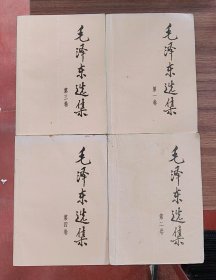 毛泽东选集
第三卷
毛泽东选集
第一卷
毛泽东选集
第四卷
毛泽东选集
第二卷